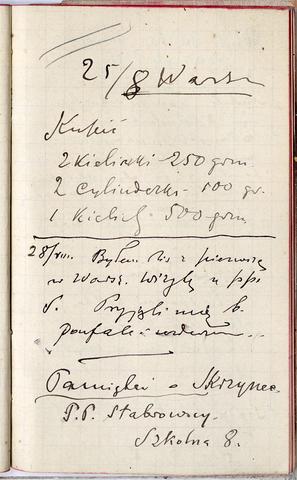 25/8 Warsz
Kupić
2 Kieliszki 250 gram.
2 cylinderki - 100 gr.
1 Kielich - 500 gram.
28/VIII. Byłem dziś z pierwszą
w Warsz. wizytą u pp.
S. Przyjęli mię b.
poufale i
Pamiętać o Skrzynce
P.P. Stabrowscy.
Szkolna 8.